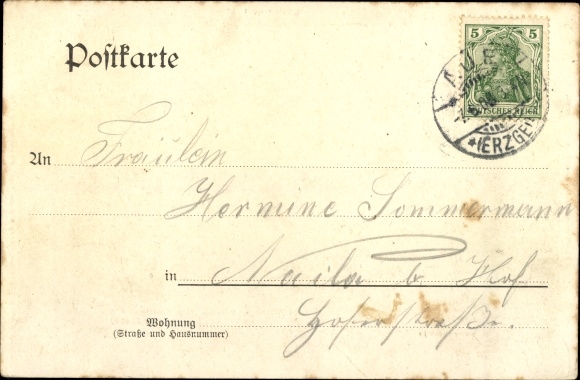 Postkarte
5 5
DEUTSCHES REICH
AUE
*(ERZGEB
An Fräulein
Hermine Sommermann
in Naila b. Hof
Wohnung
(Straße und Hausnummer)
Hoferstraße.